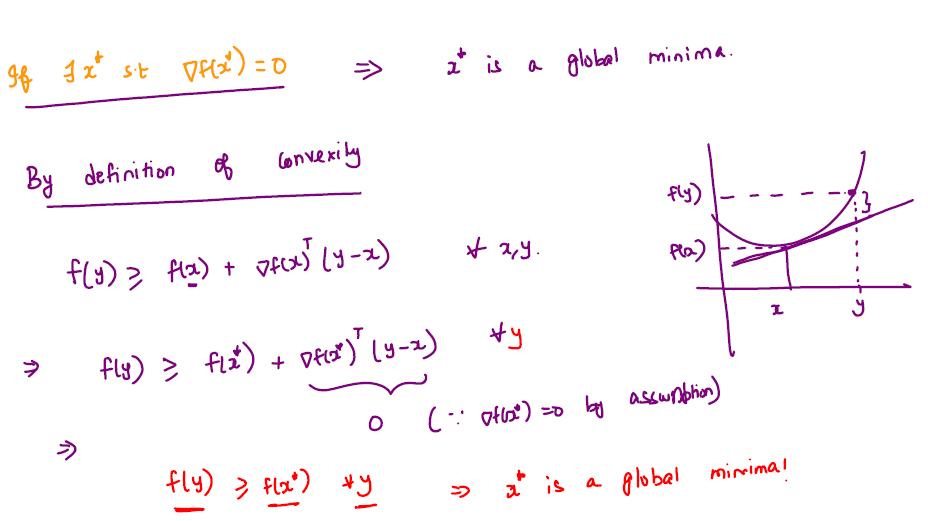 If ∃ x* s.t ∇f(x*) = 0 ⇒ x* is a global minima.
By definition of convexity
f(y) ≥ f(x) + ∇f(x)ᵀ (y-x) ∀ x,y.
⇒ f(y) ≥ f(x*) + ∇f(x*)ᵀ (y-x) ∀y
0 (∵ ∇f(x*) = 0 by assumption)
⇒
f(y) ≥ f(x*) ∀y ⇒ x* is a global minima!
f(y)
f(x)
x y